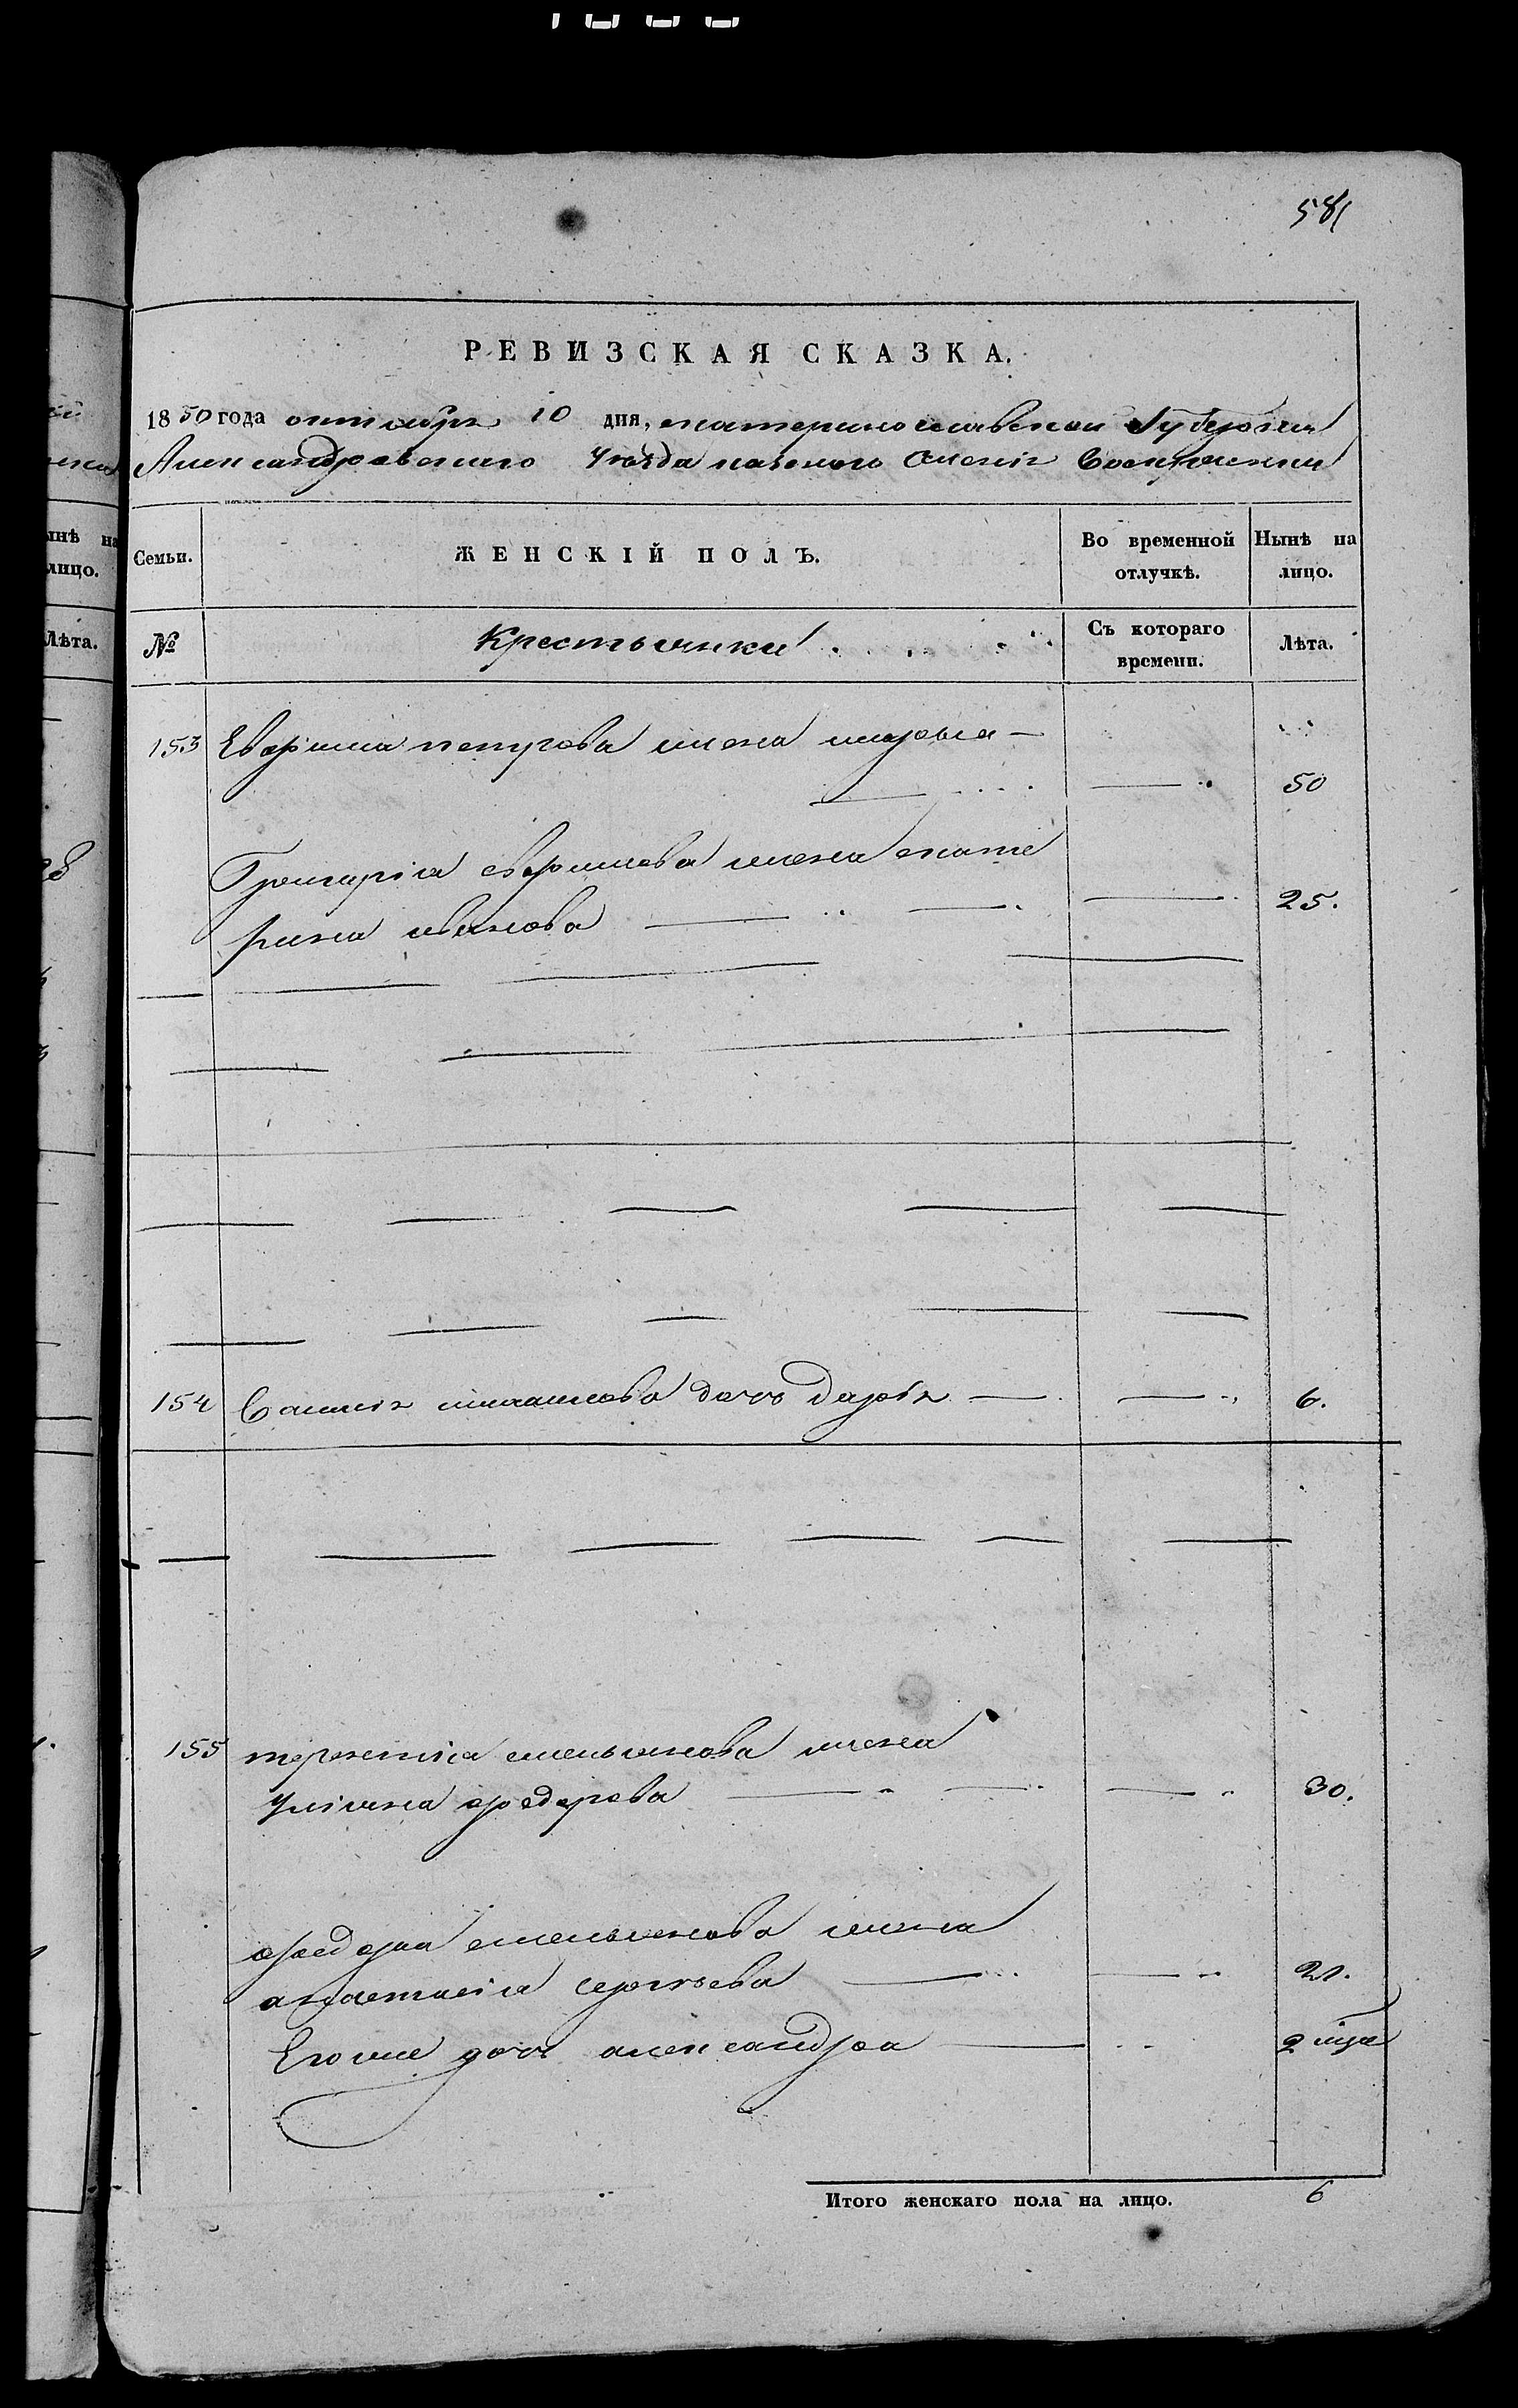 581
РЕВИЗСКАЯ СКАЗКА.
1850 года октября 10 дня, екатеринославской Губернии
Александровского Уезда казеного
Семьи. ЖЕНСКІЙ ПОЛЪ. Во временной отлучкѣ. Нынѣ на лицо.
№ Крестьянки Съ котораго времени. Лѣта.
153 Ефрима петрова жена марья
50
Григоріа ефримова жена екате
рина иванова 25.
154 дочь даріа 6.
155 терентіа емельянова жена
Уліана федорова 30.
федора емельянова жена
анастасіа сергѣева 21.
Егоже дочь александра 2 мца
Итого женскаго пола на лицо. 6